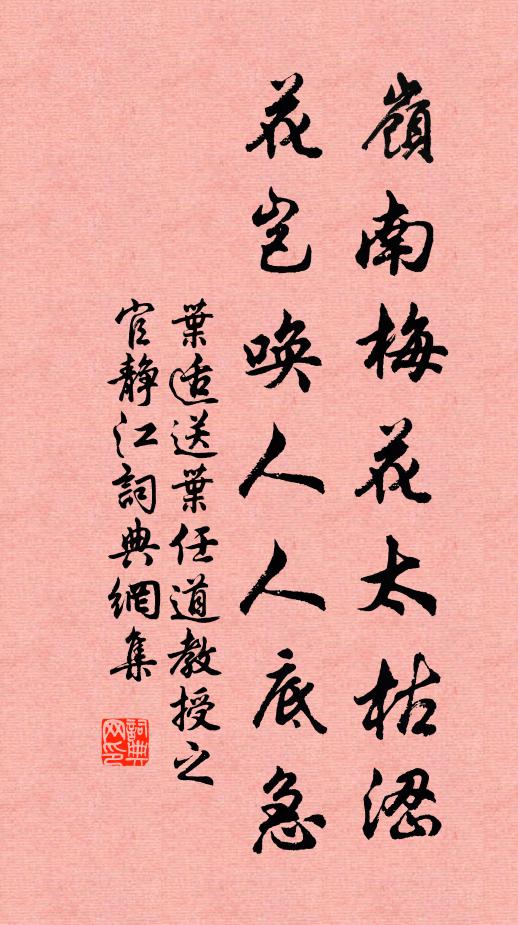 嶺南梅花太枯澀
花岂唤人人底急
葉适送葉任道教授之
官静江詞典網集
詞典網印